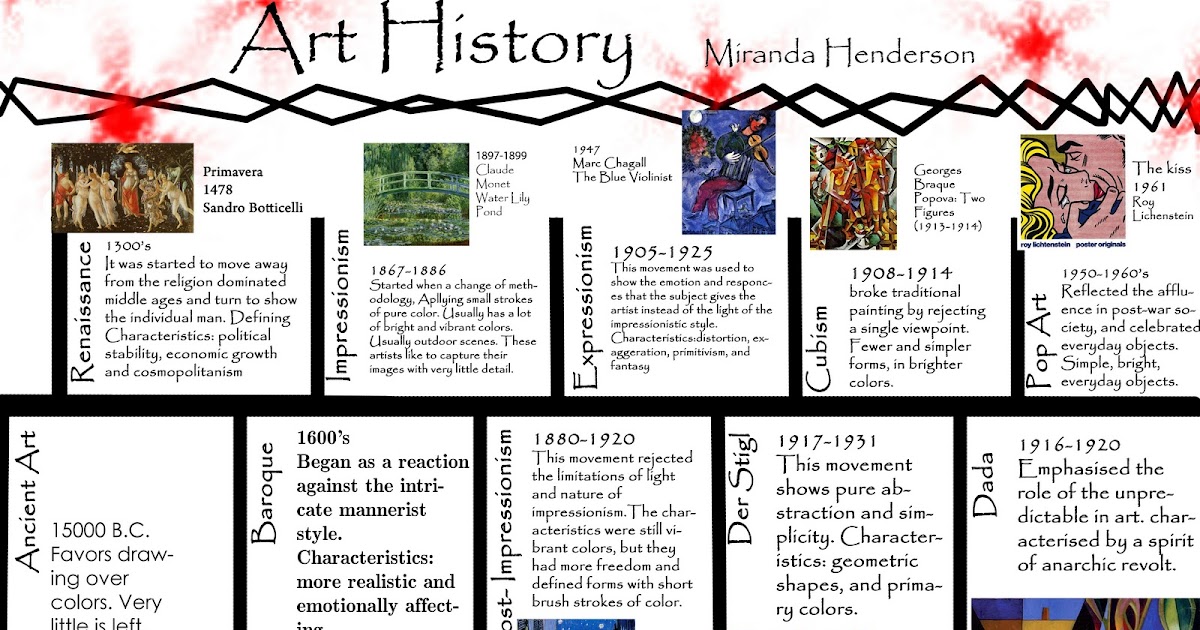 Art History
Miranda Henderson
Primavera
1478
Sandro Botticelli
Renaissance
1300's
It was started to move away
from the religion dominated
middle ages and turn to show
the individual man. Defining
Characteristics: political
stability, economic growth
and cosmopolitanism
1897-1899
Claude
Monet
Water Lily
Pond
Impressionism
1867-1886
Started when a change of meth-
odology, Apllying small strokes
of pure color. Usually has a lot
of bright and vibrant colors.
Usually outdoor scenes. These
artists like to capture their
images with very little detail.
1947
Marc Chagall
The Blue Violinist
Expressionism
1905-1925
This movement was used to
show the emotion and responc-
es that the subject gives the
artist instead of the light of the
impressionistic style.
Characteristics:distortion, ex-
aggeration, primitivism, and
fantasy
Georges
Braque
Popova: Two
Figures
(1913-1914)
Cubism
1908-1914
broke traditional
painting by rejecting
a single viewpoint.
Fewer and simpler
forms, in brighter
colors.
The kiss
1961
Roy
Lichenstein
roy lichtenstein poster originals
Pop Art
1950-1960's
Reflected the afflu-
ence in post-war so-
ciety, and celebrated
everyday objects.
Simple, bright,
everyday objects.
Ancient Art
15000 B.C.
Favors draw-
ing over
colors. Very
little is left
Baroque
1600's
Began as a reaction
against the intri-
cate mannerist
style.
Characteristics:
more realistic and
emotionally affect-
ing.
ost- Impressionism
1880-1920
This movement rejected
the limitations of light
and nature of
impressionism.The char-
acteristics were still vi-
brant colors, but they
had more freedom and
defined forms with short
brush strokes of color.
Der Stigl
1917-1931
This movement
shows pure ab-
straction and sim-
plicity. Character-
istics: geometric
shapes, and prima-
ry colors.
Dada
1916-1920
Emphasised the
role of the unpre-
dictable in art. char-
acterised by a spirit
of anarchic revolt.